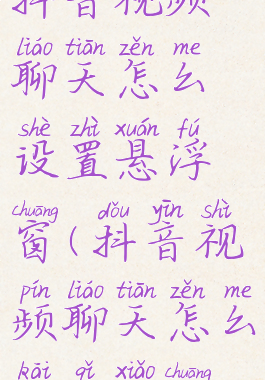 抖音视频
liáo tiān zěn me
聊天怎么
shè zhì xuán fú
设置悬浮
chuāng dǒu yīn shì
窗(抖音视
pín liáo tiān zěn me
频聊天怎么
kāi qǐ xiǎo chuāng